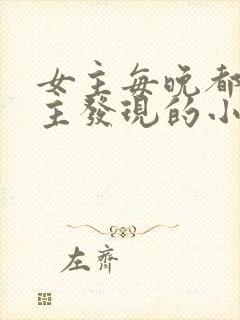 女主每晚都
主發現的小
左齊